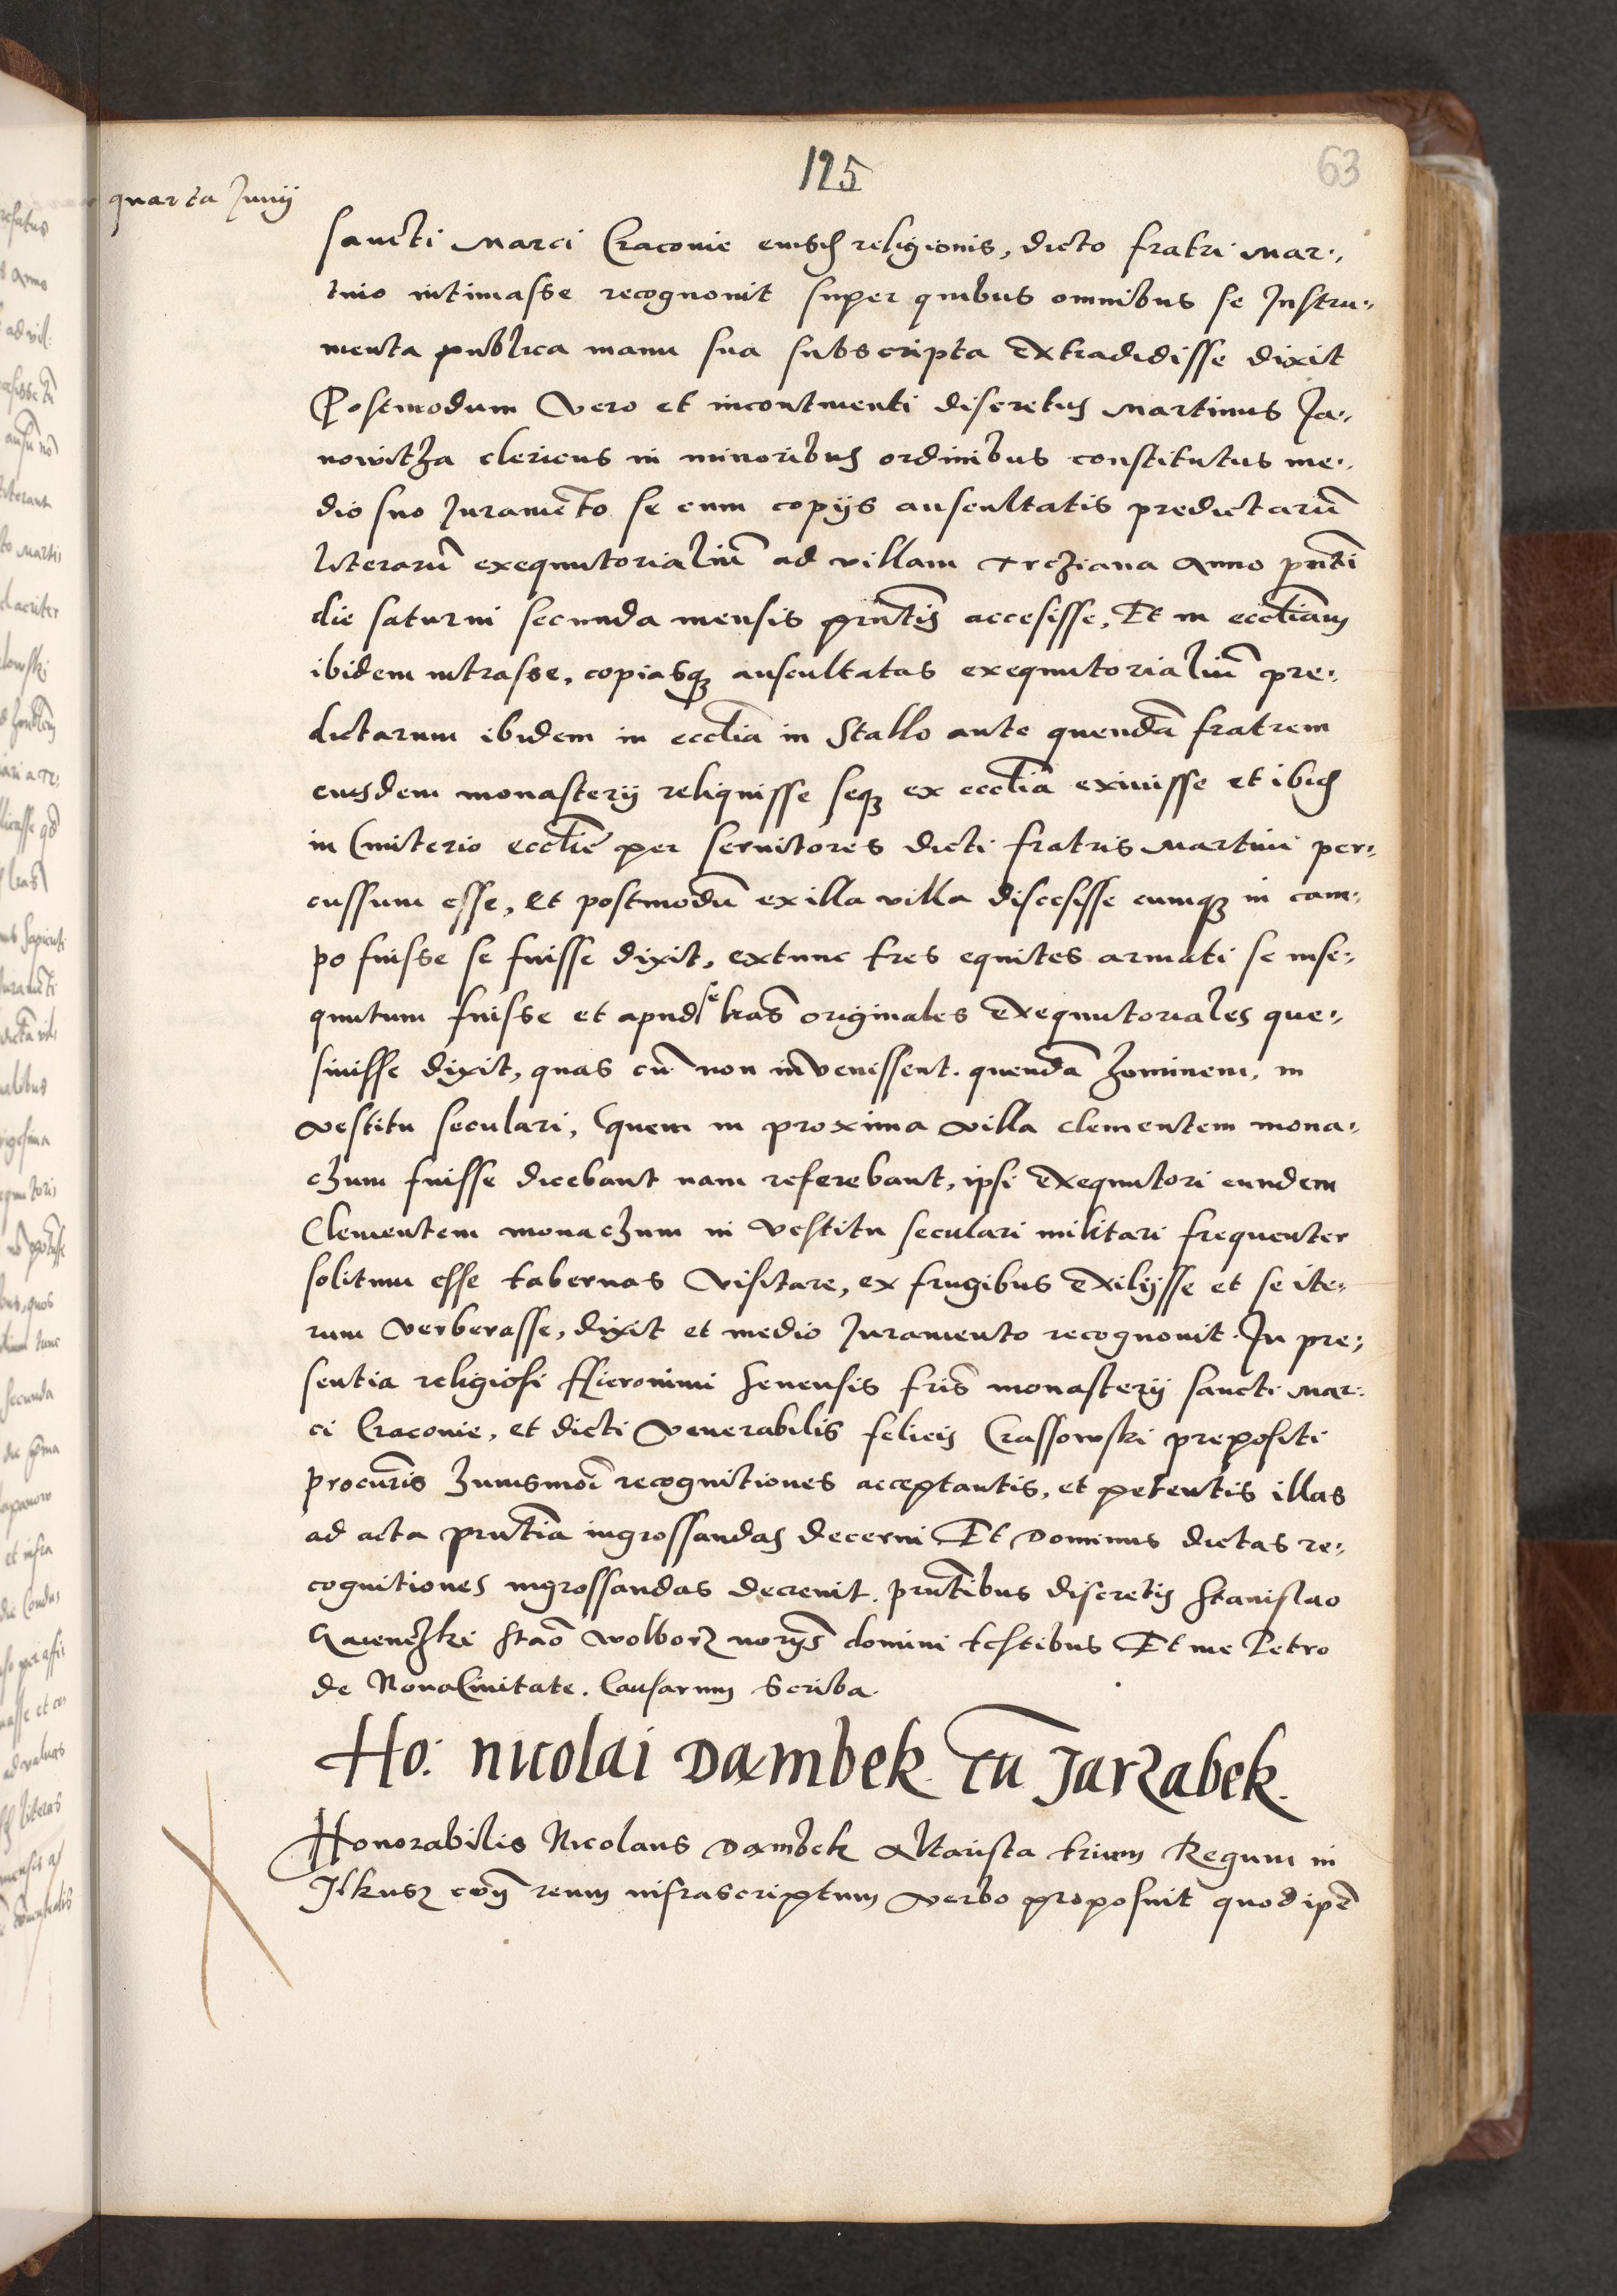 125
63
quarta Junij
sancti Marci Craconie eiusd religionis, dicto fratri Mar-
tino intimasse recognouit super quibus omnibus se Instru-
menta publica manu sua subscripta extradidisse dixit
Postmodum vero et incontinenti discretus Martinus Ja-
nowitza clericus in minoribus ordinibus constitutus me-
dio suo Juramēto se cum copijs auscultatis predictarū
literarū exequutorialiū ad villam Trcziana Anno pn̄ti
die saturni secunda mensis prn̄tis accesisse, Et in eccl̄iam
ibidem intrasse, copiasq auscultatas exequutorialiū pre-
dictarum ibidem in eccl̄ia in Stallo ante quendā fratrem
eiusdem monasterij reliquisse seq ex eccl̄ia exiuisse et ibid
in Cmiterio eccl̄ie per seruitores dicti fratris Martini per-
cussum esse, et postmodū ex illa villa discesisse cumq in cam-
po fuisse se fuisse dixit, extunc tres equites armati se inse-
quutum fuisse et apud se lr̄as originales exequutoriales que-
siuisse dixit, quas cū non invenissent. quendā hominem, in
vestitu seculari, quem in proxima villa clementem mona-
chum fuisse dicebant nam referebant, ipsi exequutori eundem
Clementem monachum in vestitu seculari militari frequenter
solitum esse tabernas visitare, ex frugibus exilijsse et se ite-
rum verberasse, dixit et medio Juramento recognouit. In pre-
sentia religiosi Hieronimi Senensis fr̄is monasterij sancti Mar-
ci Craconie, et dicti venerabilis felicis Crassowski prepositi
procur̄is huiusmōi recognitiones acceptantis, et petentis illas
ad acta prn̄tia ingrossandas decerni Et Dominus dictas re-
cognitiones ingrossandas decreuit. prn̄tibus discretis Stanislao
Stāo Wolborz nor̄ijs domini testibus Et me Petro
de Noua Ciuitate. Causarum scriba.
Ho: nicolai Dambek. cū Jarzabek.
Honorabilis Nicolaus Dambek Altarista trium Regum in
Ilkusz reum infrascriptum verbo proposuit quod ipē